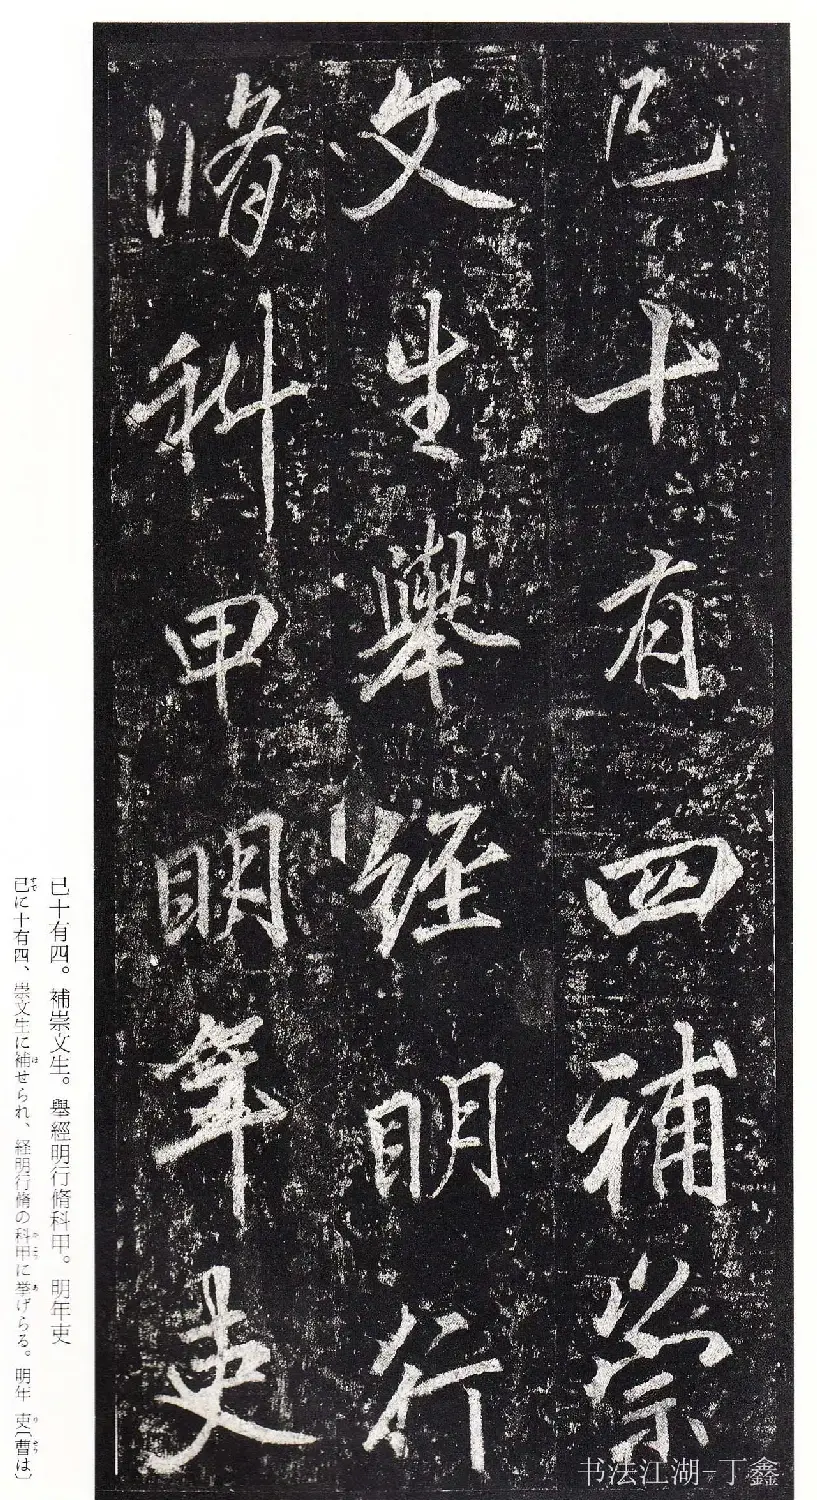 已十有四補崇
文生舉經明行
脩科甲明年吏
已十有四。補崇文生。舉經明行脩科甲。明年吏
已に十有四、崇文生に補せられ、経明行脩の科甲に挙げらる。明年 吏〔曹は〕
书法江湖-丁鑫